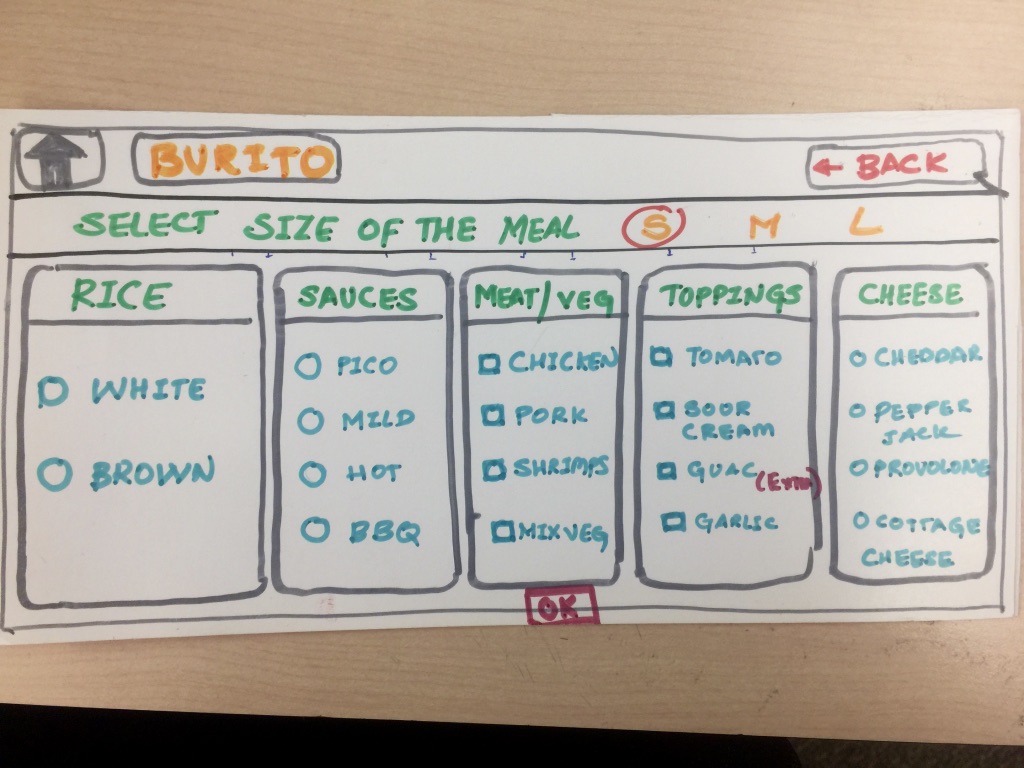 BURITO
← BACK
SELECT SIZE OF THE MEAL S M L
RICE
WHITE
BROWN
SAUCES
PICO
MILD
HOT
BBQ
MEAT/VEG
CHICKEN
PORK
SHRIMPS
MIXVEG
TOPPINGS
TOMATO
SOUR
CREAM
GUAC (Extra)
GARLIC
CHEESE
CHEDDAR
PEPPER
JACK
PROVOLONE
COTTAGE
CHEESE
OK